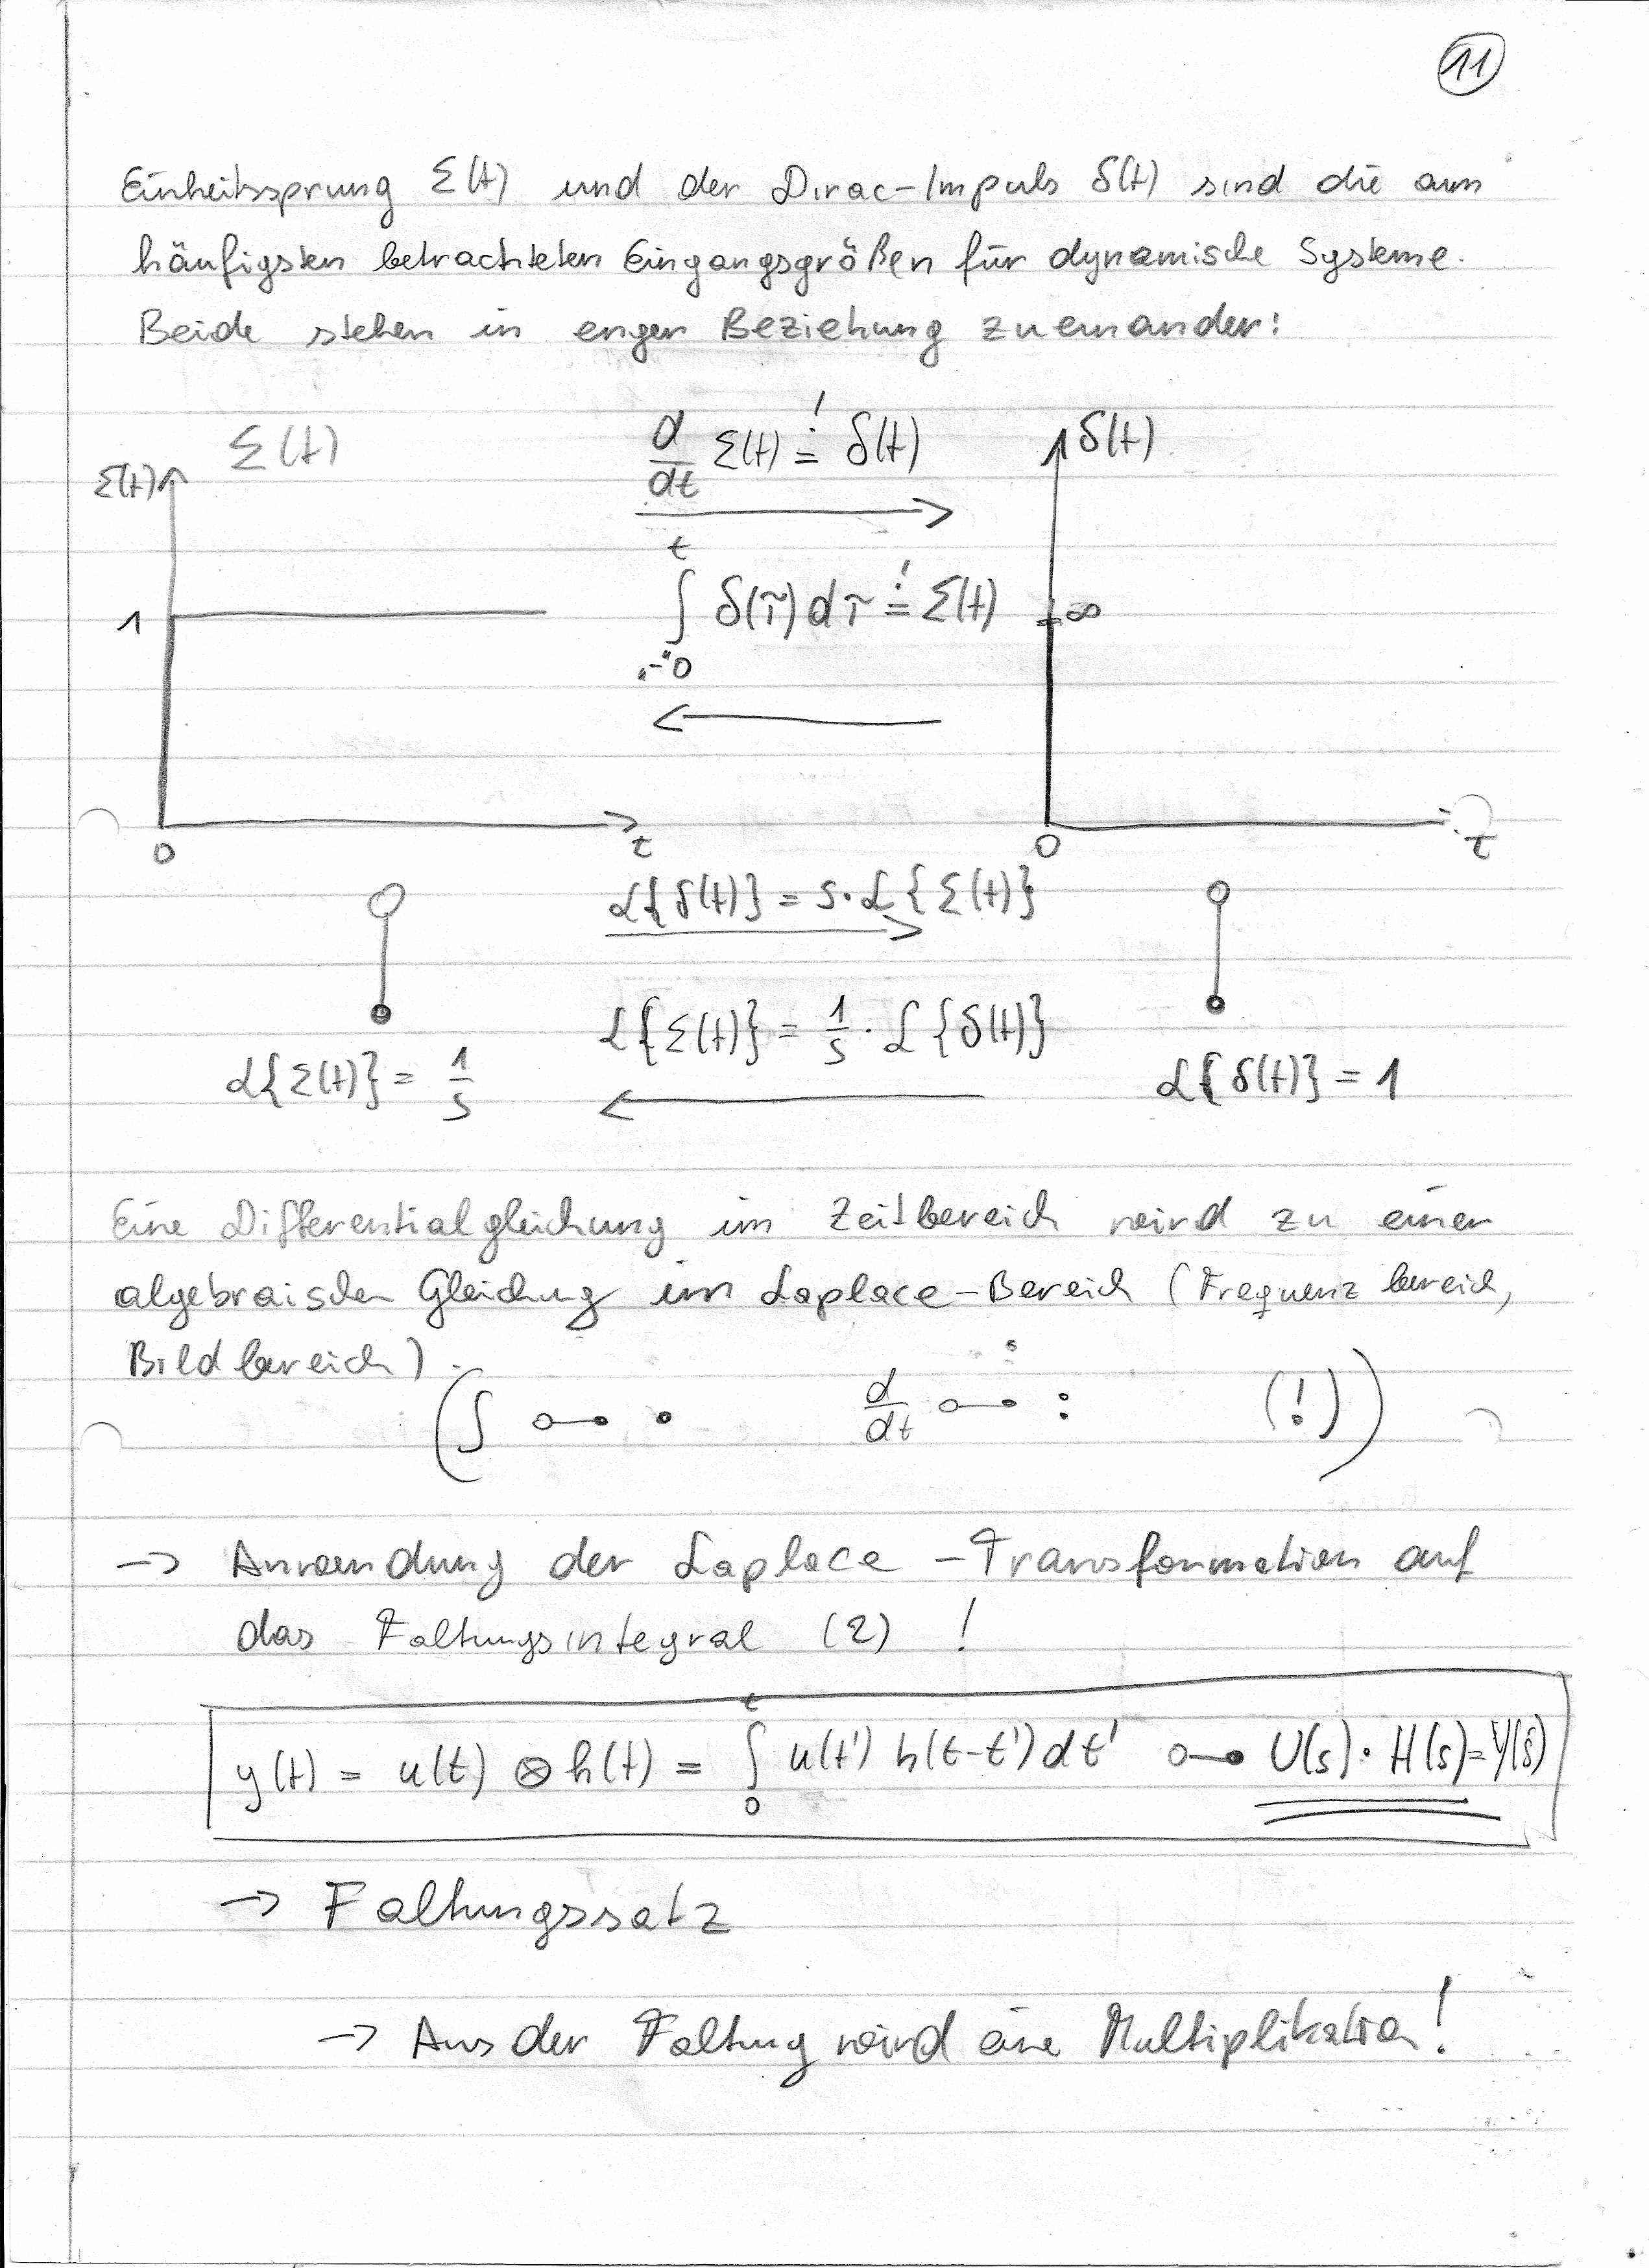 11
Einheitssprung Σ(t) und der Dirac-Impuls δ(t) sind die am
häufigsten betrachteten Eingangsgrößen für dynamische Systeme.
Beide stehen in enger Beziehung zueinander:
Σ(t)
d/dt Σ(t) =! δ(t)
δ(t)
Σ(t)
t
∫ δ(τ) dτ =! Σ(t)
"-"0
1
∞
0
t
0
t
L{δ(t)} = s · L{Σ(t)}
L{Σ(t)} = 1/s · L{δ(t)}
L{Σ(t)} = 1/s
L{δ(t)} = 1
Eine Differentialgleichung im Zeitbereich wird zu einer
algebraischen Gleichung im Laplace-Bereich (Frequenzbereich,
Bildbereich).
(∫ ○—● • d/dt ○—● : (!))
→ Anwendung der Laplace-Transformation auf
das Faltungsintegral (2) !
y(t) = u(t) ⊗ h(t) = ∫₀ᵗ u(t') h(t-t') dt' ○—● U(s) · H(s) = Y(s)
→ Faltungssatz
→ Aus der Faltung wird eine Multiplikation!